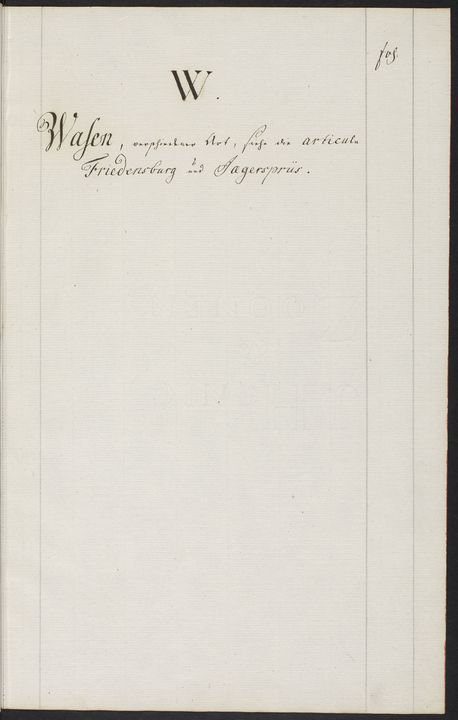 fol.
W.
Wasen, verschiedener Art, siehe die articuln
Friedensburg und Jagerspriis.